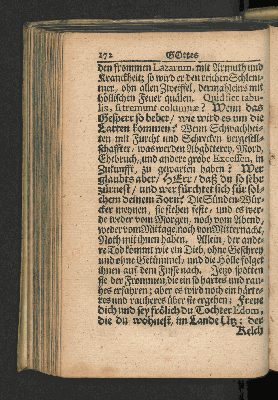 172 GOttes
den frommen Lazarum, mit Armuth und
Kranckheit; so wird er den reichen Schlem-
mer, ohn allen Zweiffel, dermahleins mit
höllischen Feuer quälen. Quid fiet tabu-
lis, si tremunt columnæ? Wenn das
Gesperr so bebet, wie wird es um die
Latten kommen? Wenn Schwachhei-
ten mit Furcht und Schrecken vergesell-
schafftet, was werden Abgötterey, Mord,
Ehebruch, und andere grobe Excessen, in
Zukunfft, zu gewarten haben? Wer
glaubts aber, HErr, daß du so sehr
zürnest, und wer fürchtet sich für sol-
chen deinem Zorn? Die Sünden-Wür-
cker meynen, sie stehen feste, und es wer-
de weder vom Morgen, noch vom Abend,
weder vom Mittage, noch von Mitternacht,
Noth mit ihnen haben. Allein, der ande-
re Tod kömmt wie ein Dieb, ohne Geschrey
und ohne Getümmel, und die Hölle folget
ihnen auf dem Fusse nach. Jetzo spotten
sie der Frommen, die ein so hartes und rau-
hes erfahren; aber es wird noch ein härte-
res und rauheres über sie ergehen; Freue
dich und sey frölich du Tochter Edom,
die du wohnest, im Lande Uz: der
Kelch